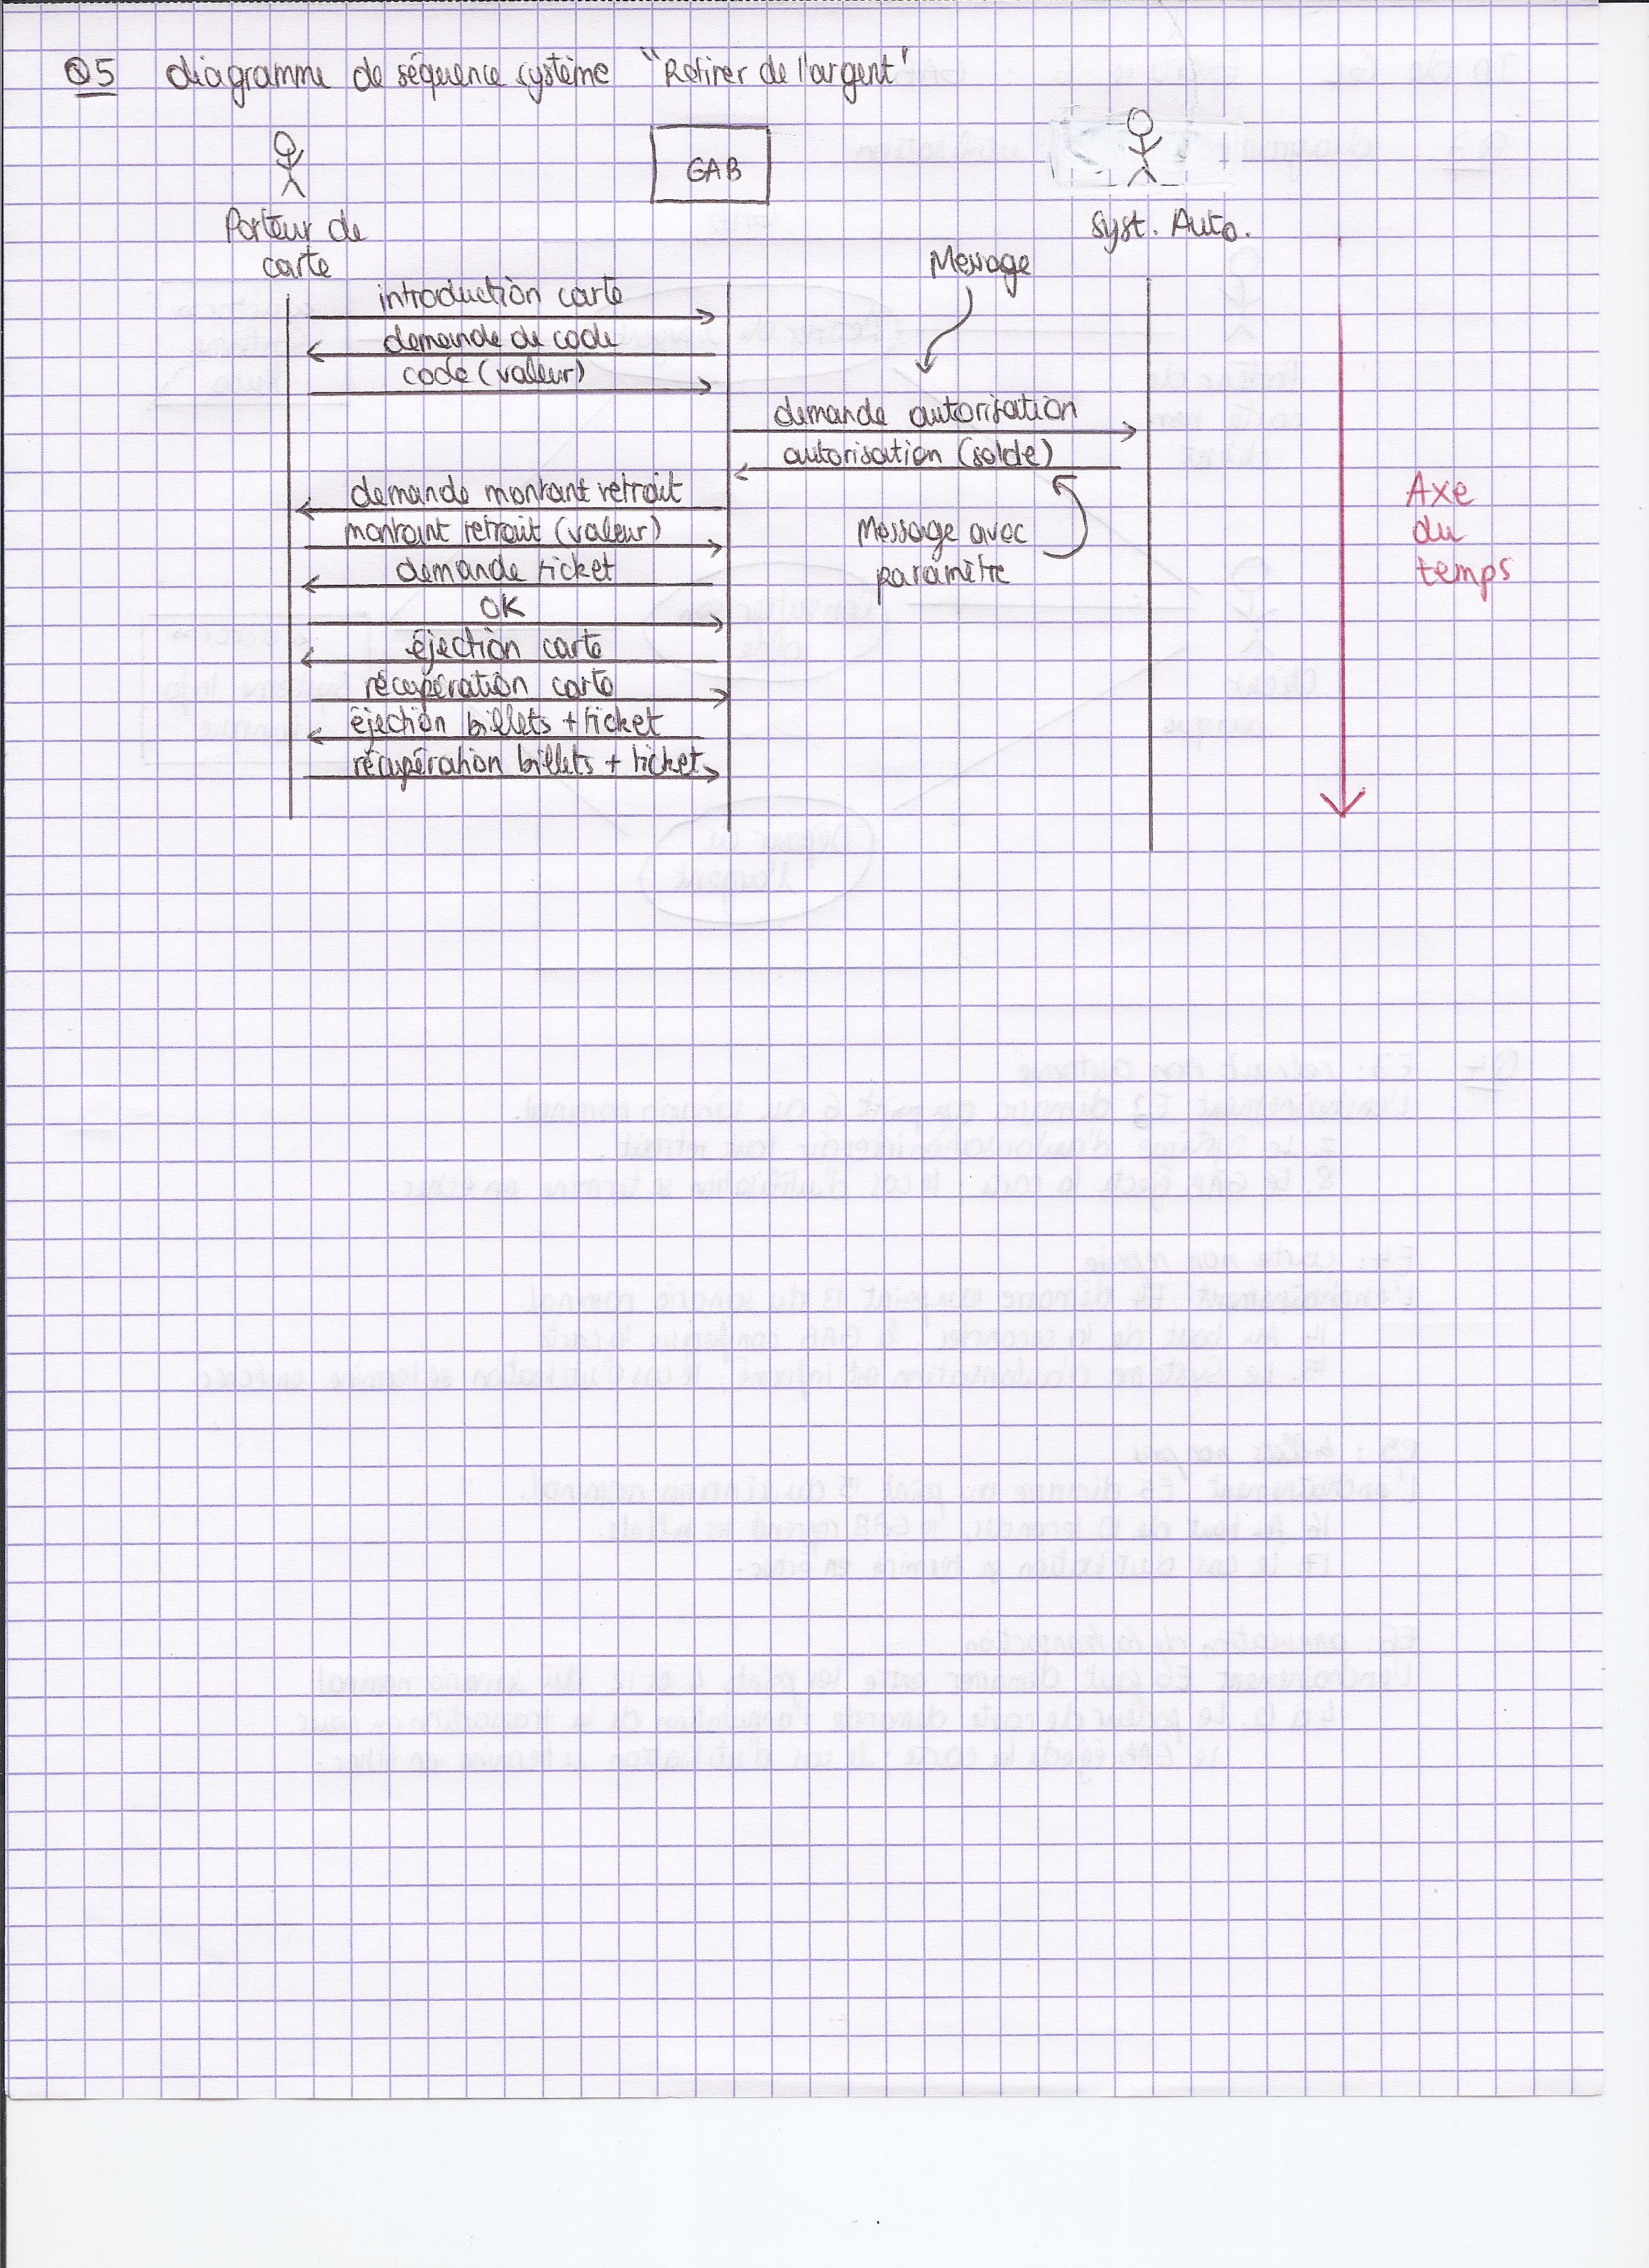 Q5 diagramme de séquence système "Retirer de l'argent"
GAB
Porteur de
carte
Syst. Auto.
Message
introduction carte
demande de code
code (valeur)
demande autorisation
autorisation (solde)
demande montant retrait
montant retrait (valeur)
Message avec
paramètre
demande ticket
OK
éjection carte
récupération carte
éjection billets + ticket
récupération billets + ticket
Axe
du
temps